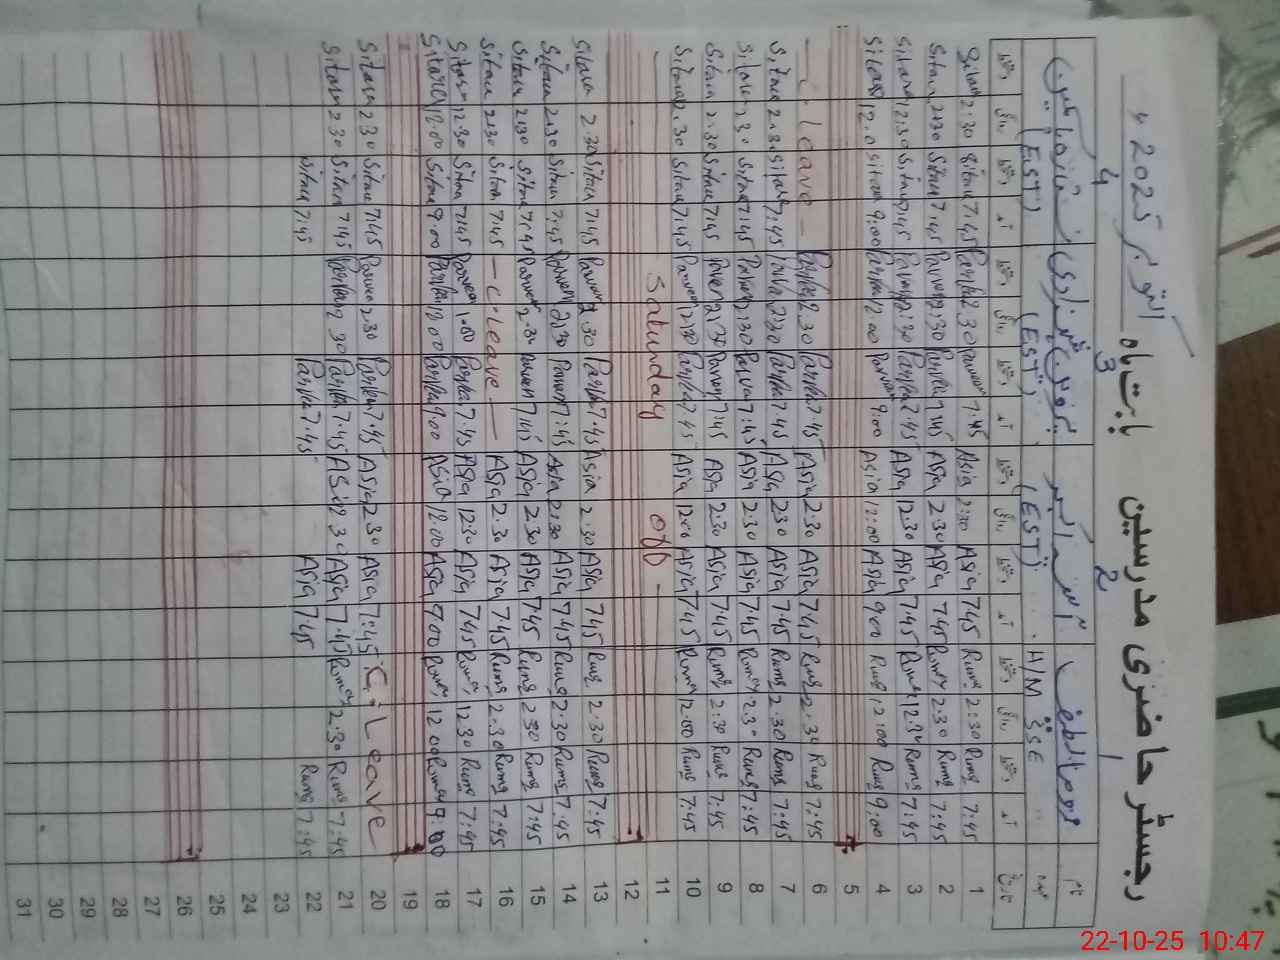 رجسٹر حاضری مدرسین بابت ماہ اکتوبر 2025ء
4 3 2 1
(EST) (EST) (EST) H/M SSE
Sitara 2:30 Sitara 7:45 Parveen 2:30 Parveen 7:45 Asia 2:30 Asia 7:45 Ruma 2:30 Ruma 7:45 1
Sitara 2:30 Sitara 7:45 Parveen 2:30 Parveen 7:45 Asia 2:30 Asia 7:45 Ruma 2:30 Ruma 7:45 2
Sitara 12:30 Sitara 7:45 Parveen 12:30 Parveen 7:45 Asia 12:30 Asia 7:45 Ruma 12:30 Ruma 7:45 3
Sitara 12:00 Sitara 9:00 Parveen 12:00 Parveen 9:00 Asia 12:00 Asia 9:00 Ruma 12:00 Ruma 9:00 4
5
— C. leave — Parveen 2:30 Parveen 7:45 Asia 2:30 Asia 7:45 Ruma 2:30 Ruma 7:45 6
Sitara 2:30 Sitara 7:45 Parveen 2:30 Parveen 7:45 Asia 2:30 Asia 7:45 Ruma 2:30 Ruma 7:45 7
Sitara 2:30 Sitara 7:45 Parveen 2:30 Parveen 7:45 Asia 2:30 Asia 7:45 Ruma 2:30 Ruma 7:45 8
Sitara 2:30 Sitara 7:45 Parveen 2:30 Parveen 7:45 Asia 2:30 Asia 7:45 Ruma 2:30 Ruma 7:45 9
Sitara 2:30 Sitara 7:45 Parveen 12:30 Parveen 7:45 Asia 12:00 Asia 7:45 Ruma 12:00 Ruma 7:45 10
— Saturday off — 11
12
Sitara 2:30 Sitara 7:45 Parveen 2:30 Parveen 7:45 Asia 2:30 Asia 7:45 Ruma 2:30 Ruma 7:45 13
Sitara 2:30 Sitara 7:45 Parveen 2:30 Parveen 7:45 Asia 2:30 Asia 7:45 Ruma 2:30 Ruma 7:45 14
Sitara 2:30 Sitara 7:45 Parveen 2:30 Parveen 7:45 Asia 2:30 Asia 7:45 Ruma 2:30 Ruma 7:45 15
Sitara 2:30 Sitara 7:45 — C. leave — Asia 2:30 Asia 7:45 Ruma 2:30 Ruma 7:45 16
Sitara 12:30 Sitara 7:45 Parveen 1:00 Parveen 7:45 Asia 12:30 Asia 7:45 Ruma 12:30 Ruma 7:45 17
Sitara 12:00 Sitara 9:00 Parveen 12:00 Parveen 9:00 Asia 12:00 Asia 9:00 Ruma 12:00 Ruma 9:00 18
19
Sitara 2:30 Sitara 7:45 Parveen 2:30 Parveen 7:45 Asia 2:30 Asia 7:45 C. Leave 20
Sitara 2:30 Sitara 7:45 Parveen 2:30 Parveen 7:45 Asia 2:30 Asia 7:45 Ruma 2:30 Ruma 7:45 21
Sitara 7:45 Parveen 7:45 Asia 7:45 Ruma 7:45 22
23
24
25
26
27
28
29
30
31
22-10-25 10:47